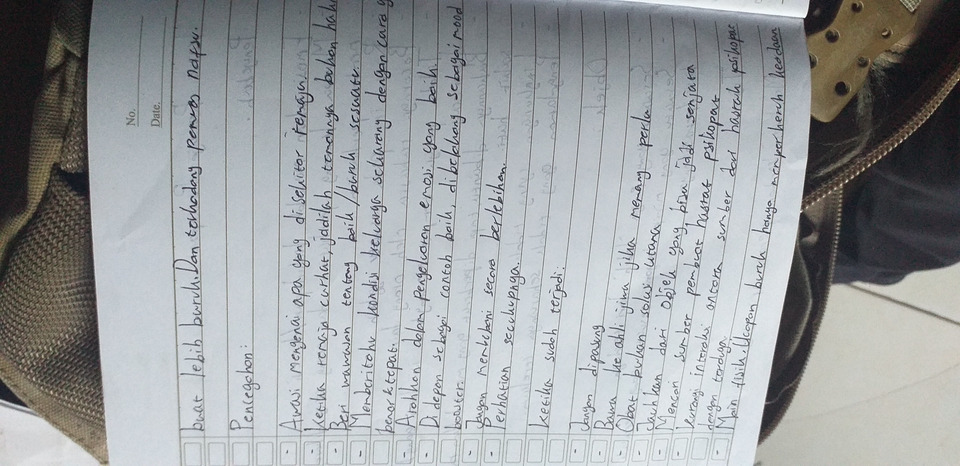 No.
Date.
buat lebih buruk. Dan terkadang pemuas nafsu.
Pencegahan:
- Awasi mengenai apa yang di sekitar remaja
- Ketika remaja curhat, jadilah temannya bukan hak
- Beri wawasan tentang baik/buruk sesuatu
- Memberitahu kondisi keluarga sekarang dengan cara y
benar & tepat.
- Arahkan dalam pengeluaran emosi yang baik.
- Di depan sebagai contoh baik, di belakang sebagai mood
booster.
- Jangan membebani secara berlebihan.
- Perhatian secukupnya.
Ketika sudah terjadi:
- Jangan dipasung
- Bawa ke ahli jiwa jika memang perlu
- Obat bukan solusi utama
- Jauhkan dari objek yang bisa jadi senjata
- Mencari sumber pembuat hasrat psikopat
- Kurangi interaksi antara sumber dari hasrat psikopat
dengan terduga
- Main fisik/Ucapan buruk hanya memperkeruh keadaan